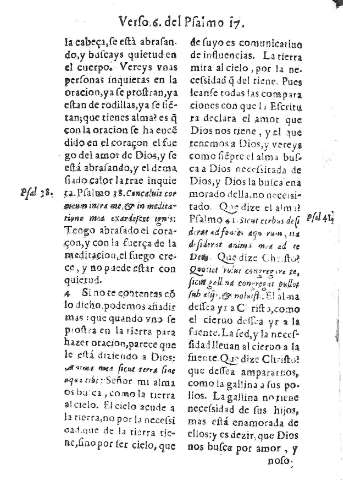 Verso. 6. del Psalmo 17.
la cabeça, se está abrasan-
do, y buscays quietud en
el cuerpo. Vereys vnas
personas inquietas en la
oracion, ya se prostran, ya
estan de rodillas, ya se siẽ-
tan; que tienes alma? es q̃
con la oracion se ha encẽ
dido en el coraçon el fue
go del amor de Dios, y se
está abrasando, y el dema
siado calor la trae inquie
ta. Psalmo 38. Concaluit cor
Psal 38.
meum intra me, & in medita-
tione mea exardescet ignis:
Tengo abrasado el cora-
çon, y con la fuerça de la
meditacion, el fuego cre-
ce, y no puede estar con
quietud.
4 Si no te contentas cõ
lo dicho, podemos añadir
mas: que quando vno se
prostra en la tierra para
hazer oracion, parece que
le está diziendo a Dios:
Anima mea sicut terra sine
aqua tibi: Señor mi alma
os busca, como la tierra
al cielo. El cielo acude a
la tierra, no por la necessi
dad que de la tierra tie-
ne, sino por ser cielo, que
de suyo es comunicatiuo
de influencias. La tierra
mira al cielo, por la ne-
cessidad q̃ del tiene. Pues
leanse todas las compara
ciones con que la Escritu
ra declara el amor que
Dios nos tiene, y el que
tenemos a Dios, y vereys
como siẽpre el alma bus-
ca a Dios necessitada de
Dios, y Dios la busca ena
morado della, no necessi-
tado. Que dize el alma?
Psalmo 41. Sicut cerbus desi
Psal 41.
derat ad fontes aquarum, ita
desiderat anima mea ad te
Deus. Que dize Christo?
Quoties volui congregare te,
sicut gallina congregat pullos
sub alis, & noluisti. El alma
dessea yr a Christo, como
el cieruo dessea yr a la
fuente. La sed, y la necess-
sidad lleuan al cieruo a la
fuente Que dize Christo?
que dessea ampararnos,
como la gallina a sus po-
llos. La gallina no tiene
necessidad de sus hijos,
mas está enamorada de
ellos; y es dezir, que Dios
nos busca por amor, y
noso-